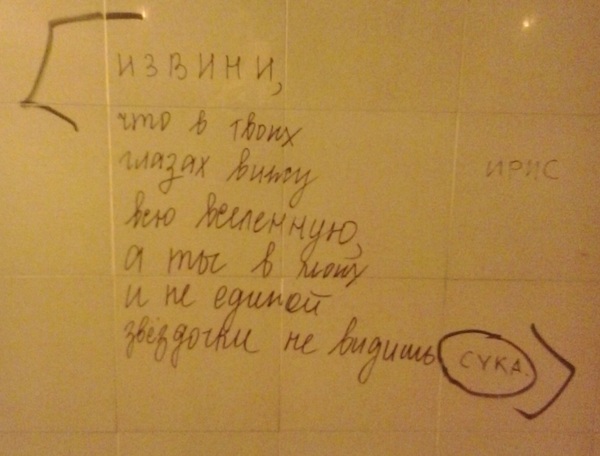 ИЗВИНИ,
что в твоих
глазах вижу
ИРИС
всю вселенную,
а ты в моих
и не единой
звёздочки не видишь СУКА.